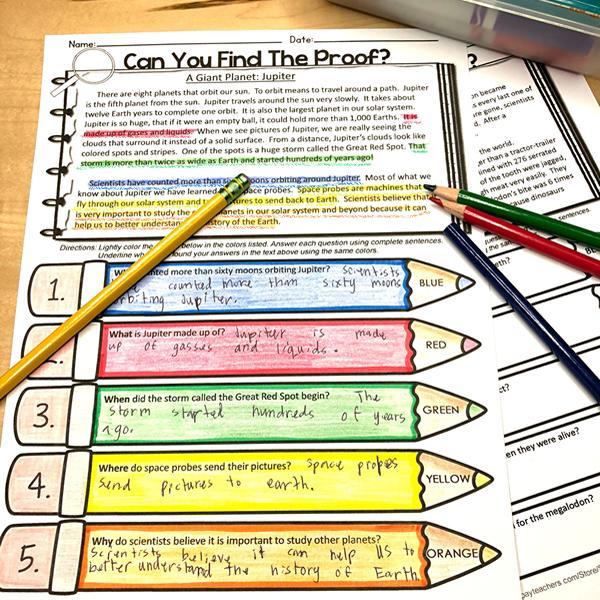 Name: Date:
Can You Find The Proof?
A Giant Planet: Jupiter
There are eight planets that orbit our sun. To orbit means to travel around a path. Jupiter
is the fifth planet from the sun. Jupiter travels around the sun very slowly. It takes about
twelve Earth years to complete one orbit. It is also the largest planet in our solar system.
Jupiter is so huge, that if it were an empty ball, it could hold more than 1,000 Earths. It is
made up of gases and liquids. When we see pictures of Jupiter, we are really seeing the
clouds that surround it instead of a solid surface. From a distance, Jupiter's clouds look like
colored spots and stripes. One of the spots is a huge storm called the Great Red Spot. That
storm is more than twice as wide as Earth and started hundreds of years ago!
Scientists have counted more than moons orbiting around Jupiter. Most of what we
know about Jupiter we have learned Space probes are machines that
fly through our solar system and to send back to Earth. Scientists believe that
is very important to study the planets in our solar system and beyond because it can
help us to better understand history of the Earth.
Directions: Lightly color the below in the colors listed. Answer each question using complete sentences.
Underline found your answers in the text above using the same colors.
1. more than sixty moons orbiting Jupiter? Scientists
counted more than sixty moons BLUE
orbiting Jupiter.
What is Jupiter made up of? Jupiter is made
up of gasses and liquids. RED
3. When did the storm called the Great Red Spot begin? The
storm started hundreds of years GREEN
ago.
4. Where do space probes send their pictures? Space probes
send pictures to earth. YELLOW
5. Why do scientists believe it is important to study other planets?
Scientists believe it can help us to ORANGE
better understand the history of Earth.
?
on became
s every last one of
re gone, scientists
d. After a
the world.
er than a tractor-trailer
lined with 276 serrated
of the tooth were jagged,
meat very easily. They
odon's bite was 6 times
cause dinosaurs
sentences
eth?
ct?
en they were alive?
for the megalodon?
payteachers.com/Store/